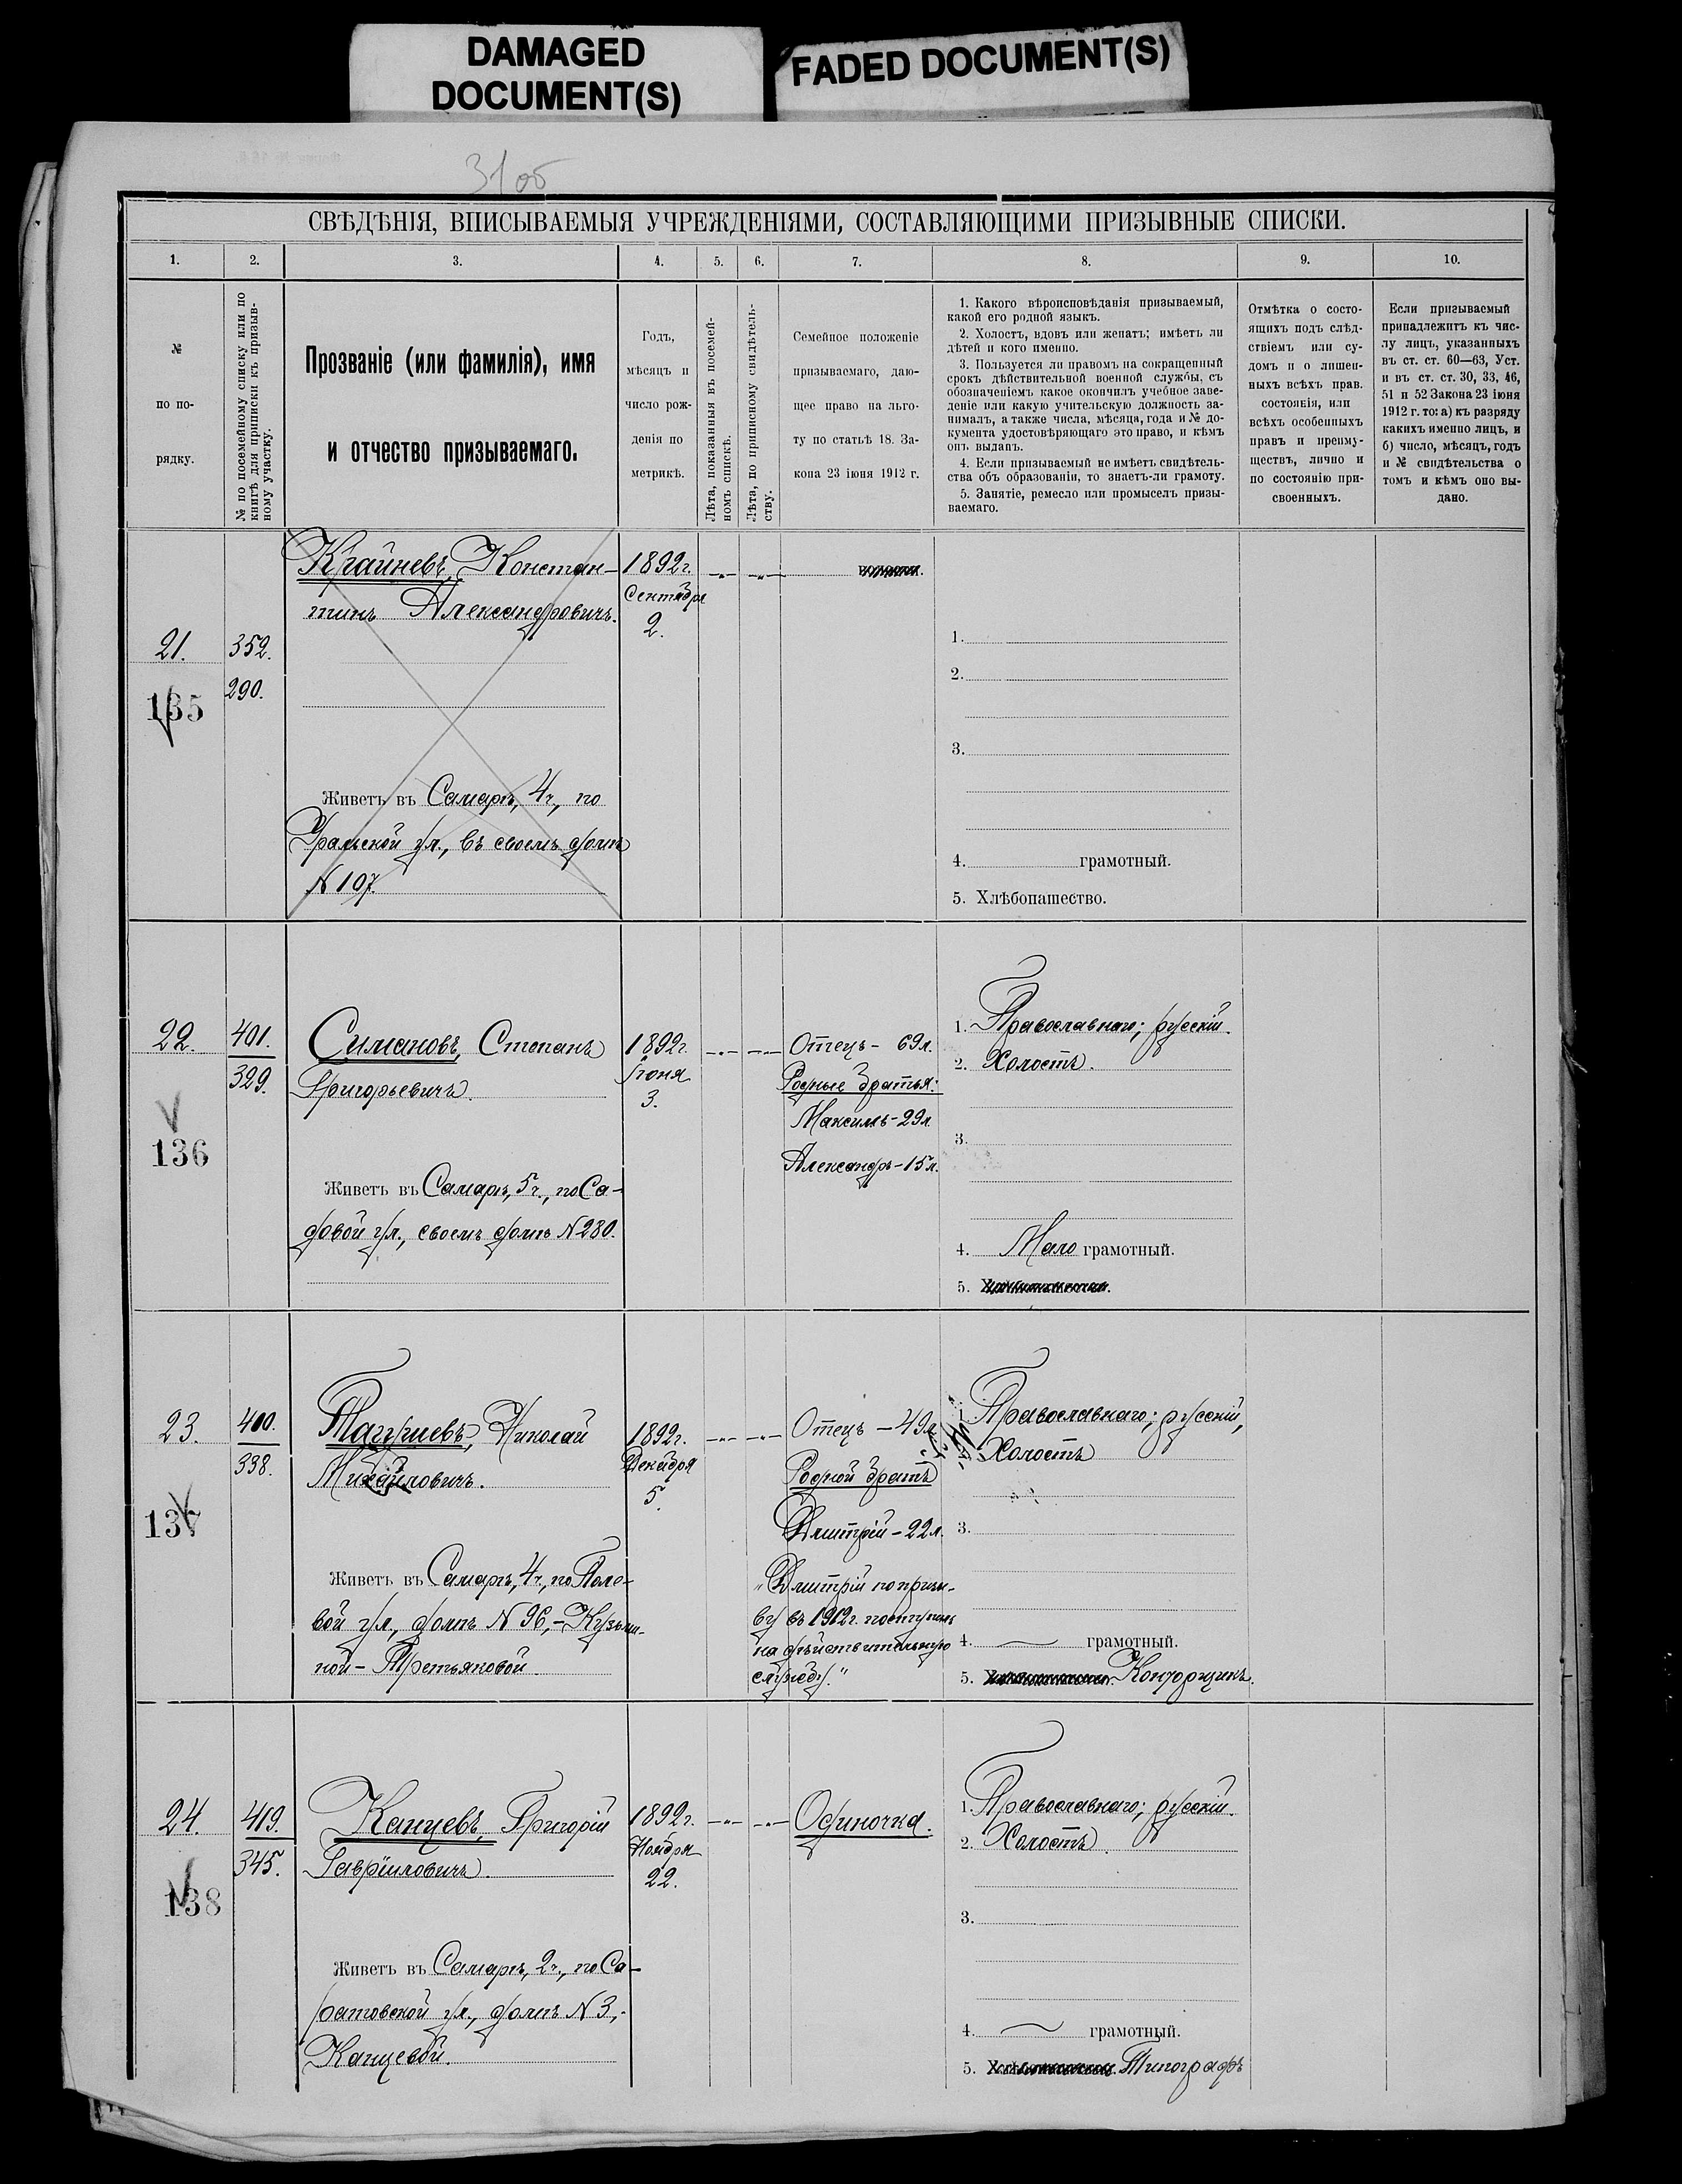 DAMAGED
DOCUMENT(S)
FADED DOCUMENT(S)
31об
СВѢДѢНІЯ, ВПИСЫВАЕМЫЯ УЧРЕЖДЕНІЯМИ, СОСТАВЛЯЮЩИМИ ПРИЗЫВНЫЕ СПИСКИ.
1. 2. 3. 4. 5. 6. 7. 8. 9. 10.
№
по по-
рядку.
№ по посемейному списку или по
книгѣ для приписки къ призыв-
ному участку.
Прозваніе (или фамилія), имя
и отчество призываемаго.
Годъ,
мѣсяцъ и
число рож-
денія по
метрикѣ.
Лѣта, показанныя въ посемей-
номъ спискѣ.
Лѣта, по приписному свидѣтель-
ству.
Семейное положеніе
призываемаго, даю-
щее право на льго-
ту по статьѣ 18. За-
кона 23 іюня 1912 г.
1. Какого вѣроисповѣданія призываемый,
какой его родной языкъ.
2. Холостъ, вдовъ или женатъ; имѣетъ ли
дѣтей и кого именно.
3. Пользуется ли правомъ на сокращенный
срокъ дѣйствительной военной службы, съ
обозначеніемъ какое окончилъ учебное заве-
деніе или какую учительскую должность за-
нималъ, а также числа, мѣсяца, года и № до-
кумента удостовѣряющаго это право, и кѣмъ
онъ выданъ.
4. Если призываемый не имѣетъ свидѣтель-
ства объ образованіи, то знаетъ-ли грамоту.
5. Занятіе, ремесло или промыселъ призы-
ваемаго.
Отмѣтка о состо-
ящихъ подъ слѣд-
ствіемъ или су-
домъ и о лишен-
ныхъ всѣхъ прав.
состоянія, или
всѣхъ особенныхъ
правъ и преиму-
ществъ, лично и
по состоянію при-
своенныхъ.
Если призываемый
принадлежитъ къ чис-
лу лицъ, указанныхъ
въ ст. ст. 60—63, Уст.
и въ ст. ст. 30, 33, 46,
51 и 52 Закона 23 іюня
1912 г. то: а) къ разряду
какихъ именно лицъ, и
б) число, мѣсяцъ, годъ
и № свидѣтельства о
томъ и кѣмъ оно вы-
дано.
21.
135
352.
290.
Крайневъ, Констан-
тинъ Александровичъ.
Живетъ въ Самарѣ, 4ч., по
Уральской ул., въ своемъ домѣ
N 107.
1892г.
Сентября
2.
1.
2.
3.
4. грамотный.
5. Хлѣбопашество.
22.
136
401.
329.
Симановъ, Степанъ
Григорьевичъ.
Живетъ въ Самарѣ, 5ч., по Са-
довой ул., своемъ домѣ N 280.
1892г.
Іюня
3.
Отецъ - 69л.
Родные братья:
Максимъ - 29л.
Александръ - 15л.
1. Православнаго; русскій.
2. Холостъ.
3.
4. Мало грамотный.
5.
23.
137
338.
Николай
Михайловичъ.
Живетъ въ Самарѣ, 4ч., по Поле-
вой ул., домѣ N 96, - Кузьми-
ной - Третьяковой.
1892г.
Декабря
5.
Отецъ - 49л.
Родной братъ
Дмитрій - 22л.
„Дмитрій по призы-
ву въ 1912г. поступилъ
на дѣйствительную
службу."
Православнаго; русскій,
Холостъ
3.
4. грамотный.
5. Конторщикъ.
24.
138
419.
345.
Канцевъ, Григорій
Гавріиловичъ.
Живетъ въ Самарѣ, 2ч., по Са-
ратовской ул., домѣ N 3,-
Канцевой.
1892г.
Ноября
22.
Одиночка.
1. Православнаго; русскій.
2. Холостъ.
3.
4. грамотный.
5. Типографъ